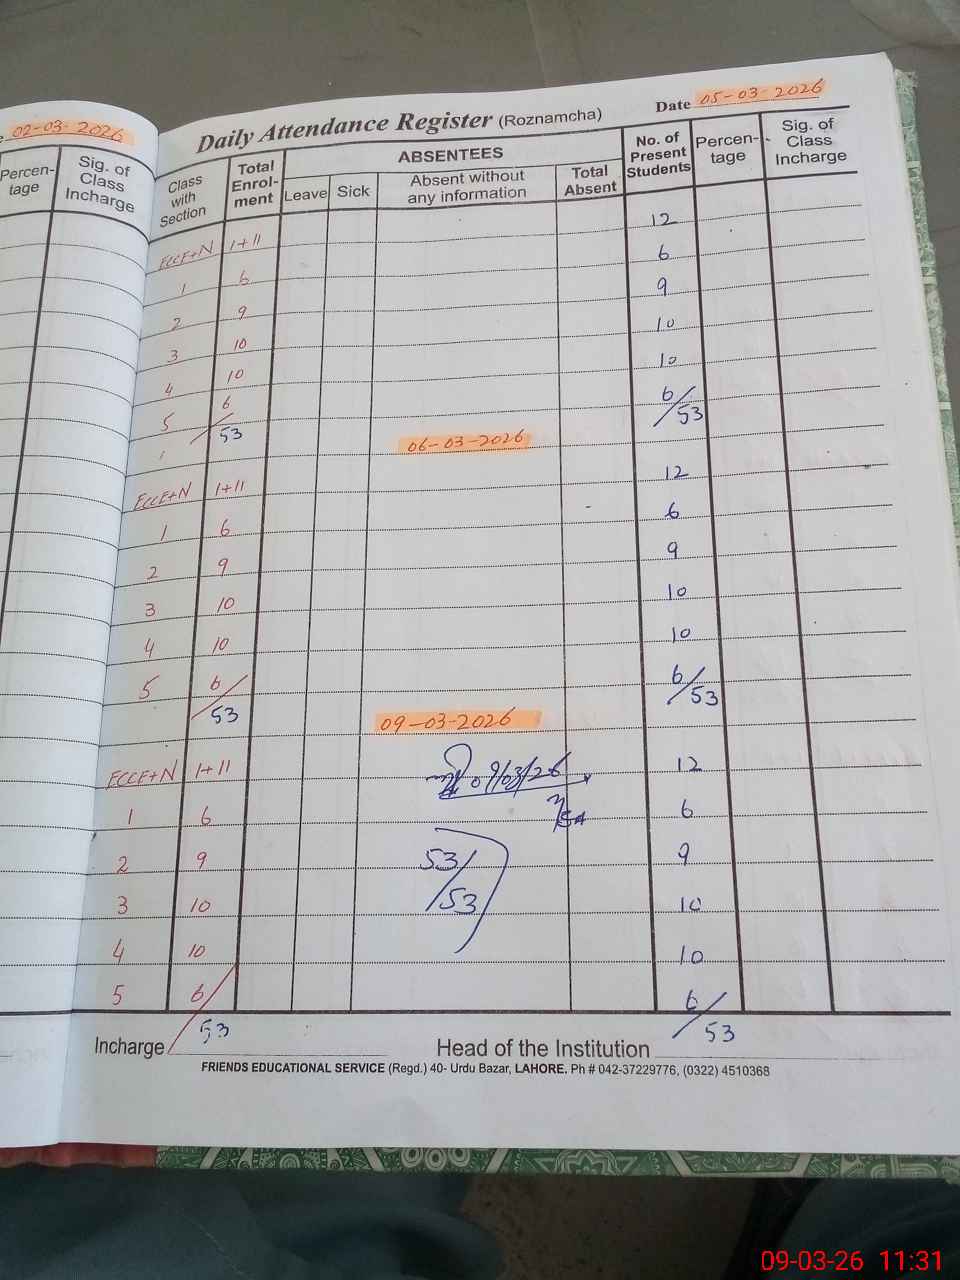 02-03-2026
Percen-tage
Sig. of Class Incharge
Daily Attendance Register (Roznamcha) Date 05-03-2026
Class with Section Total Enrol-ment ABSENTEES No. of Present Students Percen-tage Sig. of Class Incharge
Leave Sick Absent without any information Total Absent
ECCE+N 1+11 12
1 6 6
2 9 9
3 10 10
4 10 10
5 6/53 6/53
06-03-2026
ECCE+N 1+11 12
1 6 6
2 9 9
3 10 10
4 10 10
5 6/53 6/53
09-03-2026
ECCE+N 1+11 09/03/26 12
1 6 6
2 9 53/53 9
3 10 10
4 10 10
5 6/53 6/53
Incharge Head of the Institution
FRIENDS EDUCATIONAL SERVICE (Regd.) 40- Urdu Bazar, LAHORE. Ph # 042-37229776, (0322) 4510368
09-03-26 11:31